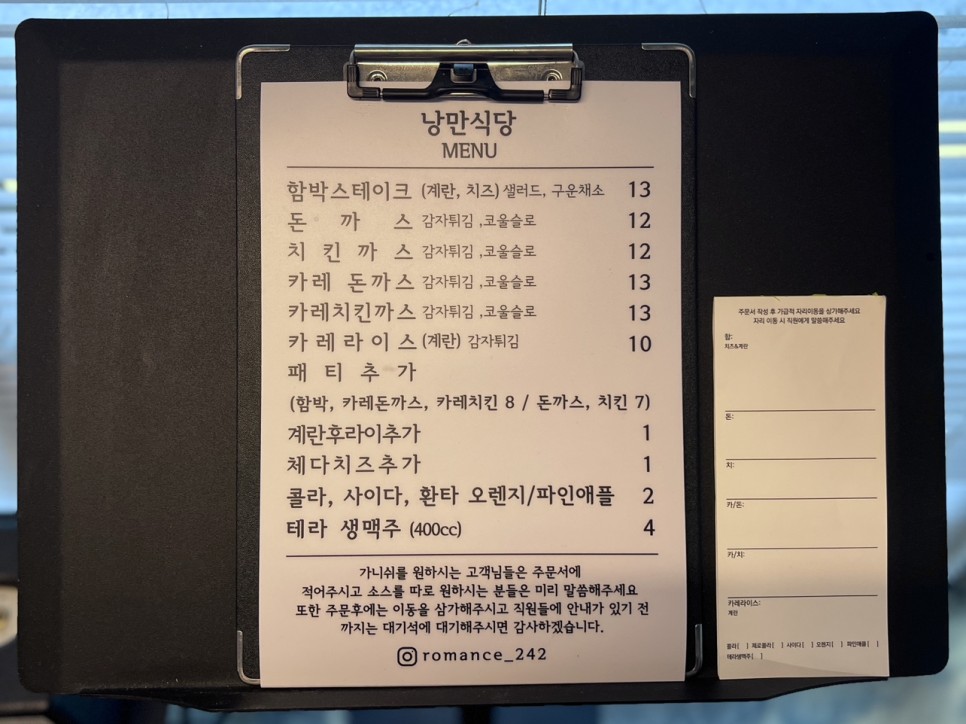 낭만식당
MENU
함박스테이크 (계란, 치즈) 샐러드, 구운채소 13
돈 까 스 감자튀김 ,코울슬로 12
치 킨 까 스 감자튀김 ,코울슬로 12
카레 돈까스 감자튀김 ,코울슬로 13
카레치킨까스 감자튀김 ,코울슬로 13
카레라이스 (계란) 감자튀김 10
패 티 추 가
(함박, 카레돈까스, 카레치킨 8 / 돈까스, 치킨 7)
계란후라이추가 1
체다치즈추가 1
콜라, 사이다, 환타 오렌지/파인애플 2
테라 생맥주 (400cc) 4
가니쉬를 원하시는 고객님들은 주문서에
적어주시고 소스를 따로 원하시는 분들은 미리 말씀해주세요
또한 주문후에는 이동을 삼가해주시고 직원들에 안내가 있기 전
까지는 대기석에 대기해주시면 감사하겠습니다.
romance_242
주문서 작성 후 가급적 자리이동을 삼가해주세요
자리 이동 시 직원에게 말씀해주세요
함:
치즈&계란
돈:
치:
카/돈:
카/치:
카레라이스:
계란
콜라[ ] 제로콜라[ ] 사이다[ ] 오렌지[ ] 파인애플[ ]
테라생맥주[ ]